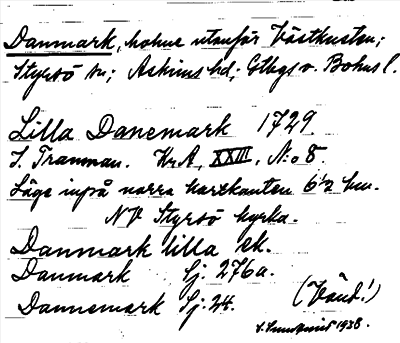 Danmark, holme utanför Västkusten;
Styrsö sn; Askims hd; Gtbgs o. Bohus l.
Lilla Danemark 1729.
J. Tranman. Kr.A, XXIII, N:o 8.
Läge inpå norra kartkanten 6 1/2 hm.
NV Styrsö kyrka.
Danmark lilla ek.
Danmark Sj. 276a.
Dannemark Sj. 24. (Vänd!)
1938.